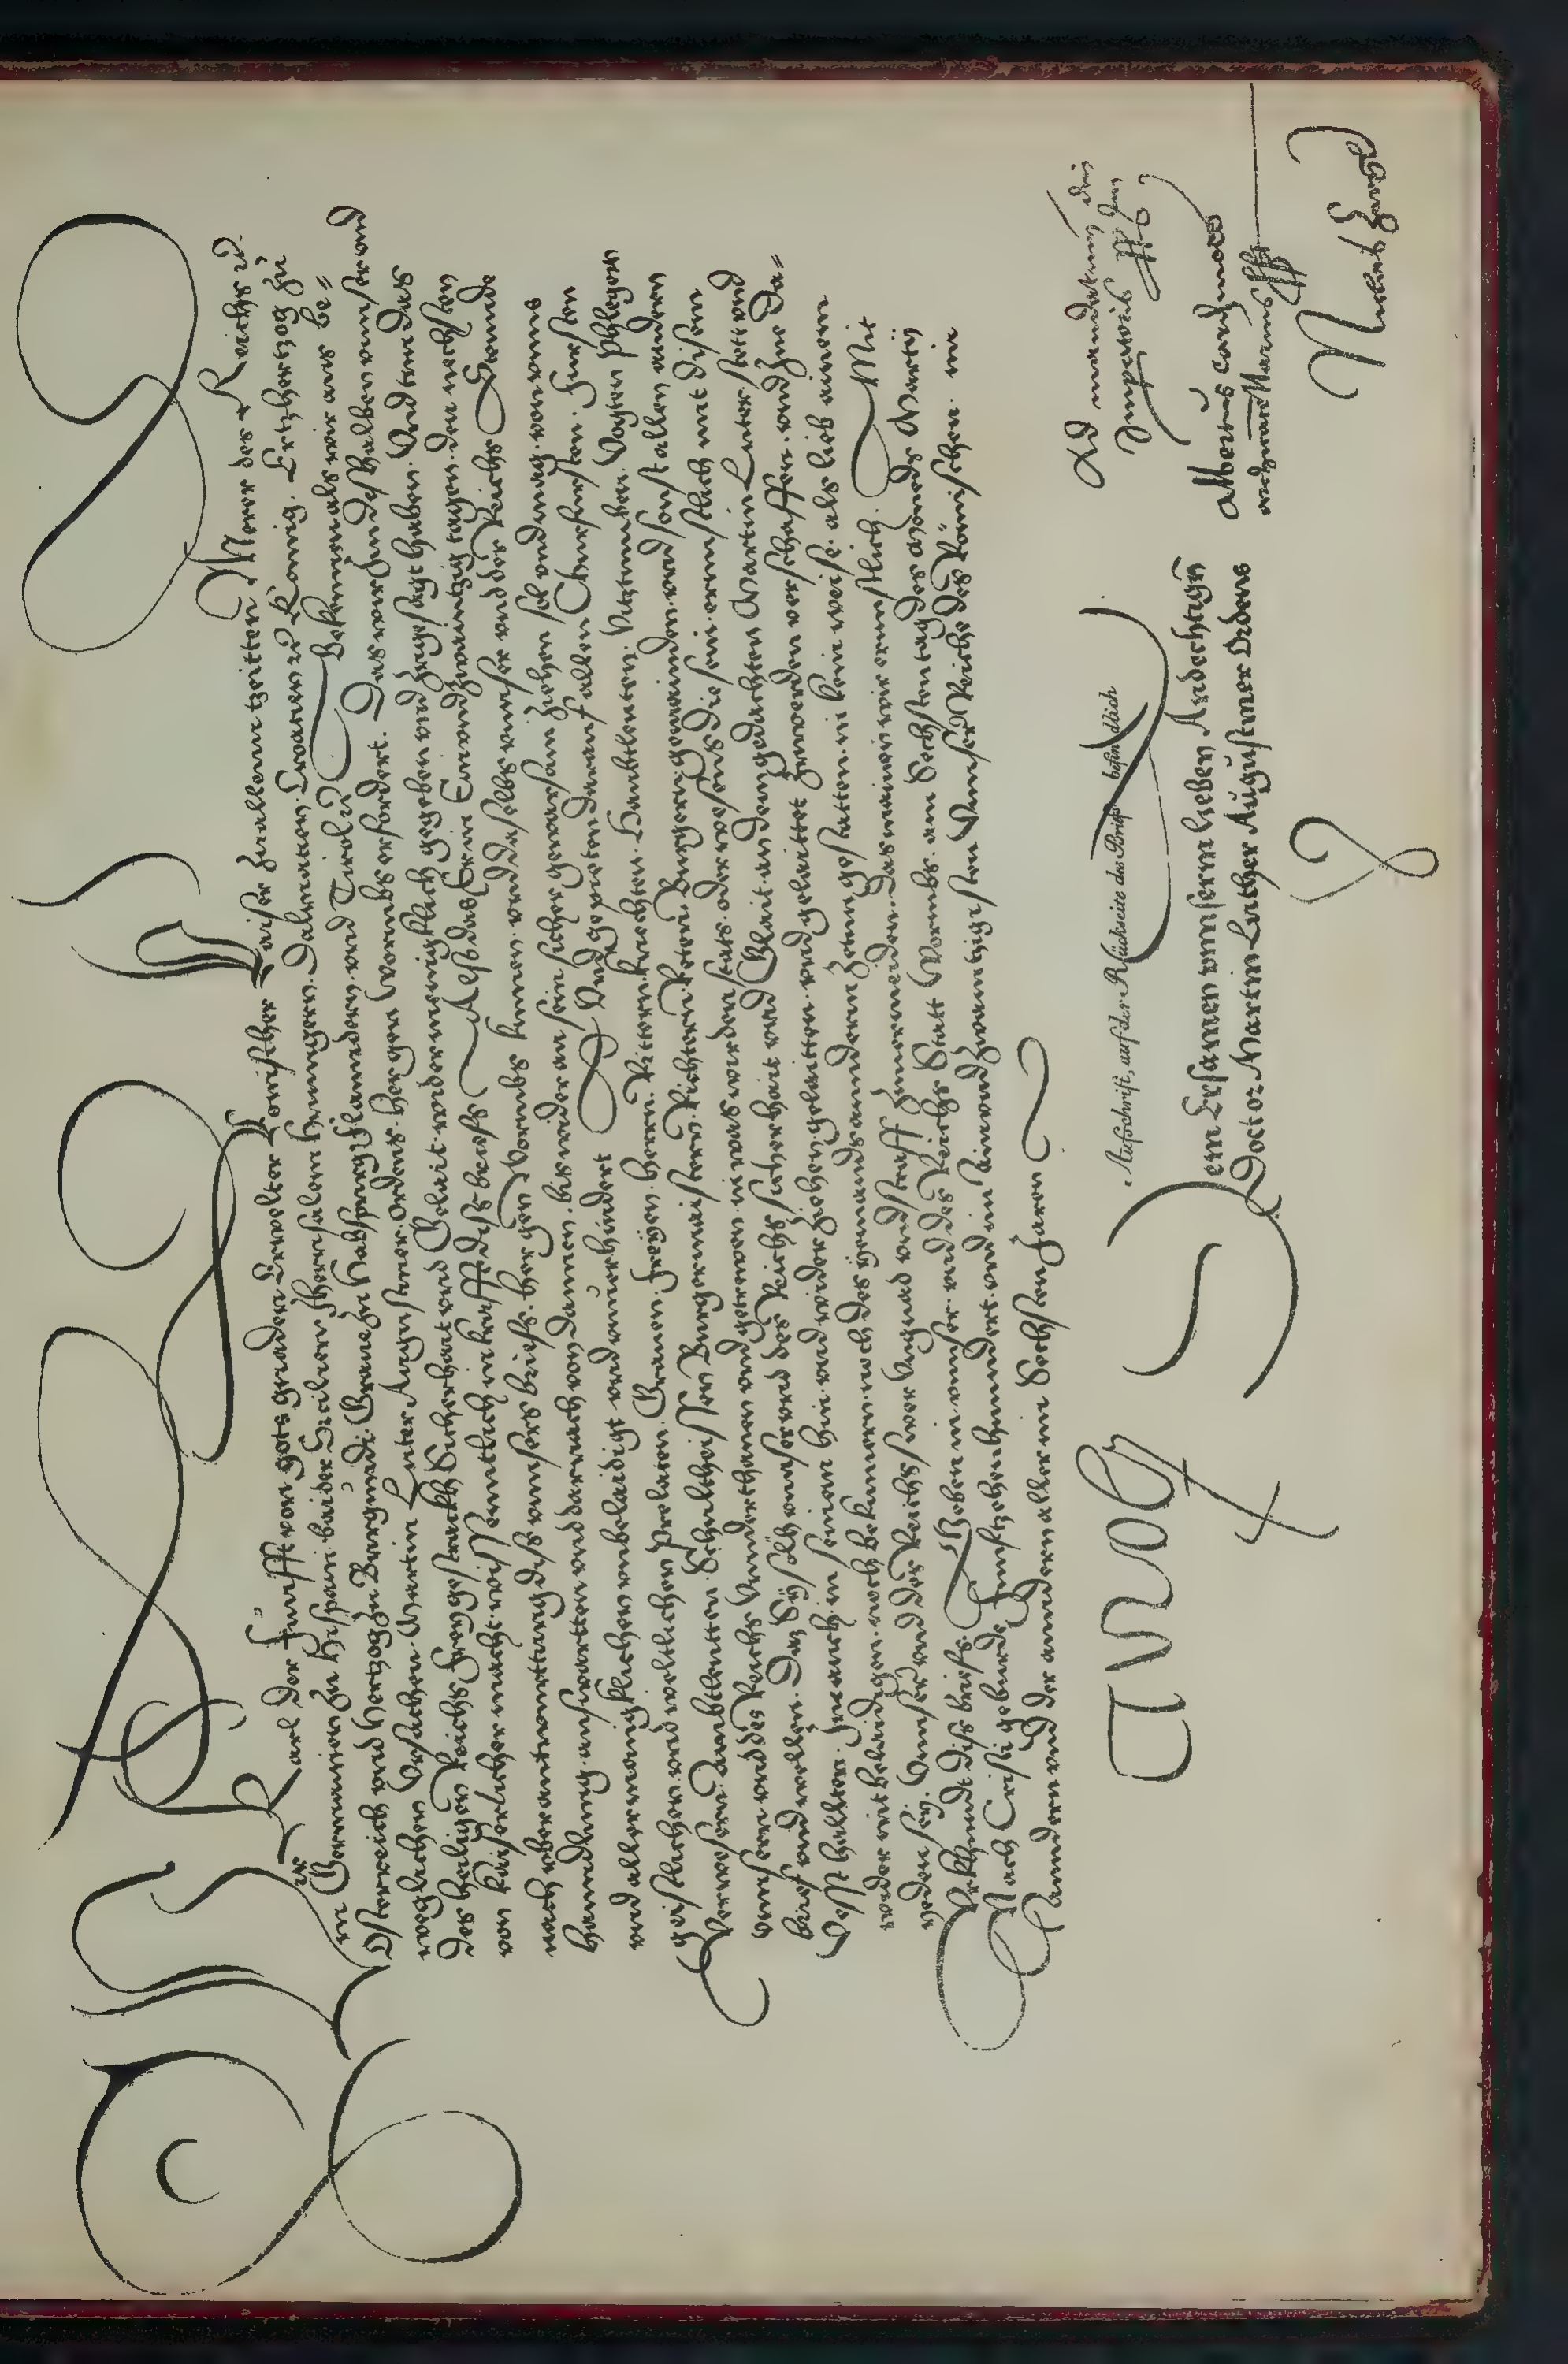 Wir Karl der Funfft von gots gnaden Erwelter Romischer Kaiser zu allenn tzeitten Merer des Reichs ꝛc.
in Germanien zu Hispain baider Sicilien Jherusalem Hungern Dalmatien Croatien ꝛc Konig. Ertzhertzog zu
Osterreich vnd Hertzog zu Burgundi Graue zu Habspurg Flanndern vnd Tirol ꝛc Bekennen als wir aus be=
weglichen Vrsachen Martin Luter Augustiner Ordens her gen Wormbs erfordert. Das wir Im deshalben vnnser vnd
des heiligen Reichs frey gestrackh Sicherhait vnd Gelait wider menigklich gegeben vnd zugesagt haben. Vnd tun das
von Kaiserlicher macht wissentlich in krafft dits briefs Also das Er in Ainvndzwaintzig tagen den nechsten
nach vberantwurttung dits vnnsers briefs her gen Wormbs kumen vnd daselbs vnnser vnd der Reichs Stennde
Hanndlung auswartten vnd darnach von dannen bis wider an sein sicher gewarsam ziehen sol vnd mag von vnns
vnd allermaingklichen vnbelaidigt vnd vnuerhindert Vnd gepieten darauf allen Churfursten Fursten
geistlichen vnd weltlichen Prelaten Grauen Freyen Herrn Rittern knechten Haubtleuten Vitztumben Vogten Phlegern
Verwesern Ambtleutten Schultheissen Burgermaistern Richtern Reten Burgern gemainden vnd sonst allen andern
vnnsern vnd des Reichs Vnnderthanen vnd getrewen in was wirden stats oder wesens die sein ernnstlich mit disem
brief vnd wellen Daz Sy sölh vnnser vnd des Reichs sicherhait vnd Glait an dem gedachten Martin Luter stett vnd
vesst hallten Jne auch in seinem hin vnd wider ziehen gelaitten vnd gelaittet zu werden verschaffen vnd Jne da=
wider nit belaidigen noch bekumern noch des yemands anderm zetun gestatten in kein weise als lieb ainem
yeden sey Vnnser vnd des Reichs swer Vngnad vnd straff zuuermeiden Das mainen wir ernnstlich Mit
Vrkhundt dits briefs Geben in vnnser vnd des Reichs Statt Wormbs am Sechsten tag des Moneds Martij
Nach Cristi geburde Funftzehenhundert vnd im Ainvndzwaintzigisten Vnnser Reiche des Römischen im
Anndern vnd der anndern aller im Sechsten Jaren
Carolus
Ad mandatum dni
Imperatoris
Albertus card mog
archicancellarius
Aufschrift, auf der Rückseite des Briefs befindlich
Dem Ersamen vnnserm lieben Andechtign
Doctor Martin Luther Augustiner Ordens